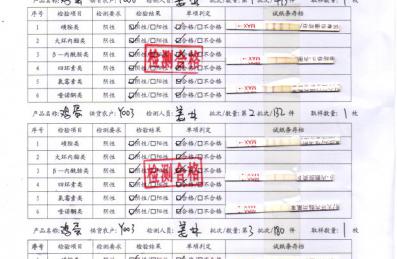 序号 检验项目 检测要求 检验结果 单项判定 试纸条存档
1 磺胺类 阴性 ☑阴性/☐阳性 ☑合格/☐不合格
2 大环内酯类 阴性 ☑阴性/☐阳性 ☑合格/☐不合格
3 β-内酰胺类 阴性 ☑阴性/☐阳性 ☑合格/☐不合格
4 四环素类 阴性 ☑阴性/☐阳性 ☑合格/☐不合格
5 氯霉素类 阴性 ☑阴性/☐阳性 ☑合格/☐不合格
6 喹诺酮类 阴性 ☑阴性/☐阳性 ☑合格/☐不合格
检测合格
产品名称: 鸡蛋 供货农户: Y003 检测人员: 批次/数量: 第 2 批次/ 132 件 取样数量: 1 枚
序号 检验项目 检测要求 检验结果 单项判定 试纸条存档
1 磺胺类 阴性 ☑阴性/☐阳性 ☑合格/☐不合格
2 大环内酯类 阴性 ☑阴性/☐阳性 ☑合格/☐不合格
3 β-内酰胺类 阴性 ☑阴性/☐阳性 ☑合格/☐不合格
4 四环素类 阴性 ☑阴性/☐阳性 ☑合格/☐不合格
5 氯霉素类 阴性 ☑阴性/☐阳性 ☑合格/☐不合格
6 喹诺酮类 阴性 ☑阴性/☐阳性 ☑合格/☐不合格
检测合格
产品名称: 鸡蛋 供货农户: Y003 检测人员: 批次/数量: 第 3 批次/ 180 件 取样数量: 1 枚
序号 检验项目 检测要求 检验结果 单项判定 试纸条存档